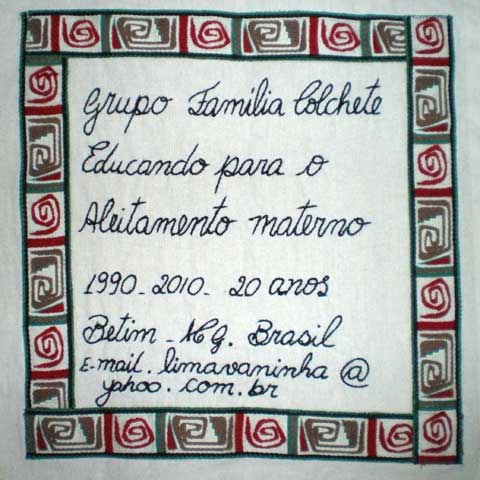 Grupo Família Colchete
Educando para o
Aleitamento materno
1990-2010- 20 anos
Betim - MG. Brasil
E-mail. limavaninha@
yahoo.com.br